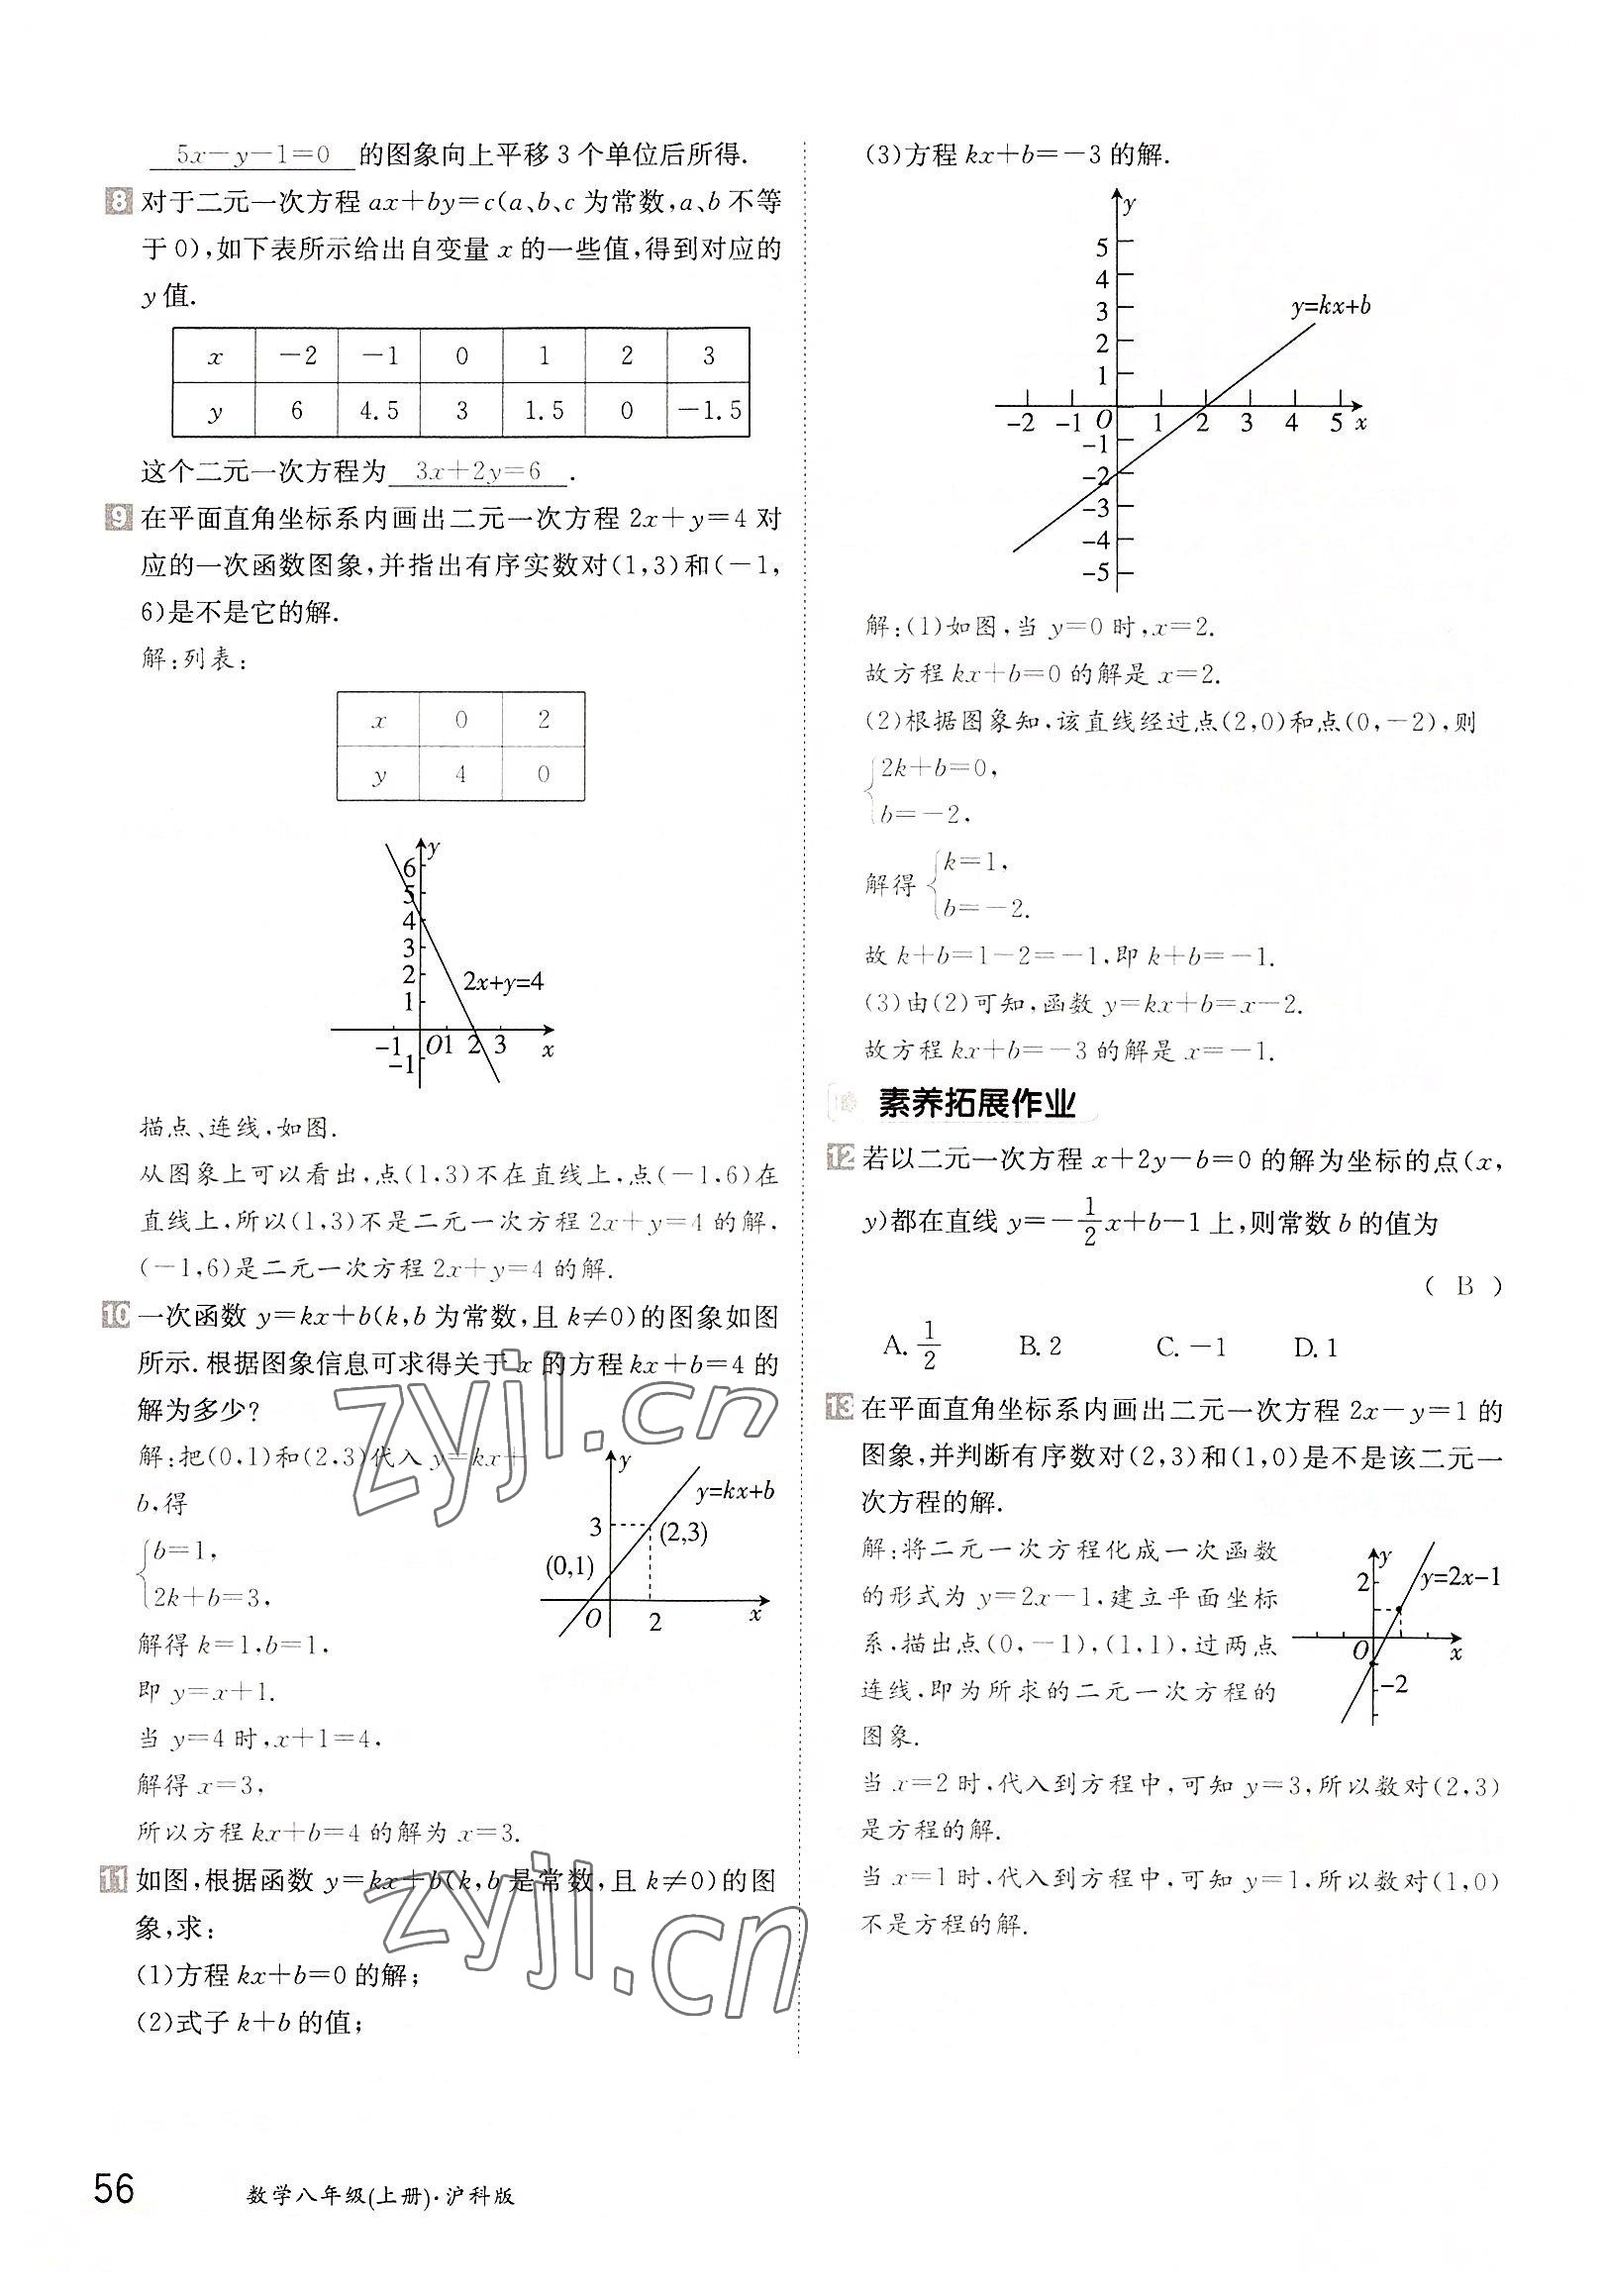 5x−y−1=0 的图象向上平移3个单位后所得.
8 对于二元一次方程 ax+by=c(a、b、c 为常数,a、b 不等
于0),如下表所示给出自变量 x 的一些值,得到对应的
y 值.
x −2 −1 0 1 2 3
y 6 4.5 3 1.5 0 −1.5
这个二元一次方程为 3x+2y=6 .
9 在平面直角坐标系内画出二元一次方程 2x+y=4 对
应的一次函数图象,并指出有序实数对(1,3)和(−1,
6)是不是它的解.
解:列表:
x 0 2
y 4 0
y
6
5
4
3
2
1
2x+y=4
−1 O 1 2 3 x
−1
描点、连线,如图.
从图象上可以看出,点(1,3)不在直线上,点(−1,6)在
直线上,所以(1,3)不是二元一次方程 2x+y=4 的解,
(−1,6)是二元一次方程 2x+y=4 的解.
10 一次函数 y=kx+b(k,b 为常数,且 k≠0)的图象如图
所示.根据图象信息可求得关于 x 的方程 kx+b=4 的
解为多少?
解:把(0,1)和(2,3)代入 y=kx+
b,得
b=1,
2k+b=3,
解得 k=1,b=1,
即 y=x+1.
当 y=4 时,x+1=4,
解得 x=3,
所以方程 kx+b=4 的解为 x=3.
y
y=kx+b
3
(2,3)
(0,1)
O 2 x
11 如图,根据函数 y=kx+b(k,b 是常数,且 k≠0)的图
象,求:
(1)方程 kx+b=0 的解;
(2)式子 k+b 的值;
(3)方程 kx+b=−3 的解.
y
5
4
3
2
1
y=kx+b
−2 −1 O 1 2 3 4 5 x
−1
−2
−3
−4
−5
解:(1)如图,当 y=0 时,x=2.
故方程 kx+b=0 的解是 x=2.
(2)根据图象知,该直线经过点(2,0)和点(0,−2),则
2k+b=0,
b=−2.
解得
k=1,
b=−2.
故 k+b=1−2=−1,即 k+b=−1.
(3)由(2)可知,函数 y=kx+b=x−2.
故方程 kx+b=−3 的解是 x=−1.
素养拓展作业
12 若以二元一次方程 x+2y−b=0 的解为坐标的点(x,
y)都在直线 y=−1/2x+b−1 上,则常数 b 的值为
( B )
A. 1/2 B. 2 C. −1 D. 1
13 在平面直角坐标系内画出二元一次方程 2x−y=1 的
图象,并判断有序数对(2,3)和(1,0)是不是该二元一
次方程的解.
解:将二元一次方程化成一次函数
的形式为 y=2x−1,建立平面坐标
系,描出点(0,−1),(1,1),过两点
连线,即为所求的二元一次方程的
图象.
y
2
y=2x−1
O x
−2
当 x=2 时,代入到方程中,可知 y=3,所以数对(2,3)
是方程的解.
当 x=1 时,代入到方程中,可知 y=1,所以数对(1,0)
不是方程的解.
zyjl.cn
zyjl.cn
56 数学八年级(上册)·沪科版